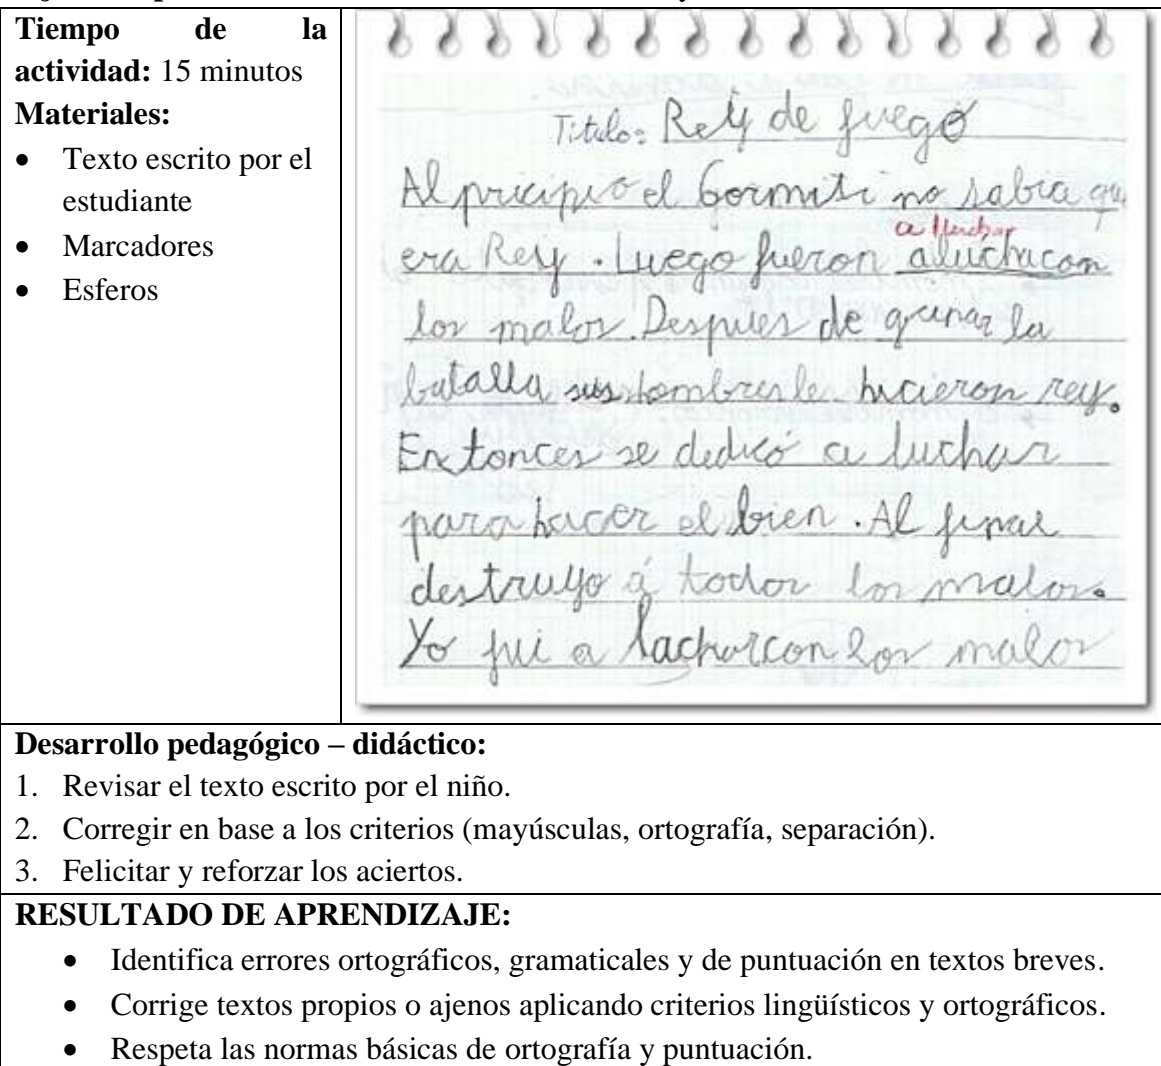 Tiempo de la
actividad: 15 minutos
Materiales:
• Texto escrito por el
estudiante
• Marcadores
• Esferos
Titulo: Rey de fuego
Al pricipio el Gormiti no sabia que
era Rey. Luego fueron aluchacon
a luchar
los malos. Despues de ganar la
batalla sus hombres le hicieron rey.
Entonces se dedicó a luchar
para hacer el bien. Al final
destruyo á todos los malos.
Yo fui a lucharcon los malos
Desarrollo pedagógico – didáctico:
1. Revisar el texto escrito por el niño.
2. Corregir en base a los criterios (mayúsculas, ortografía, separación).
3. Felicitar y reforzar los aciertos.
RESULTADO DE APRENDIZAJE:
• Identifica errores ortográficos, gramaticales y de puntuación en textos breves.
• Corrige textos propios o ajenos aplicando criterios lingüísticos y ortográficos.
• Respeta las normas básicas de ortografía y puntuación.